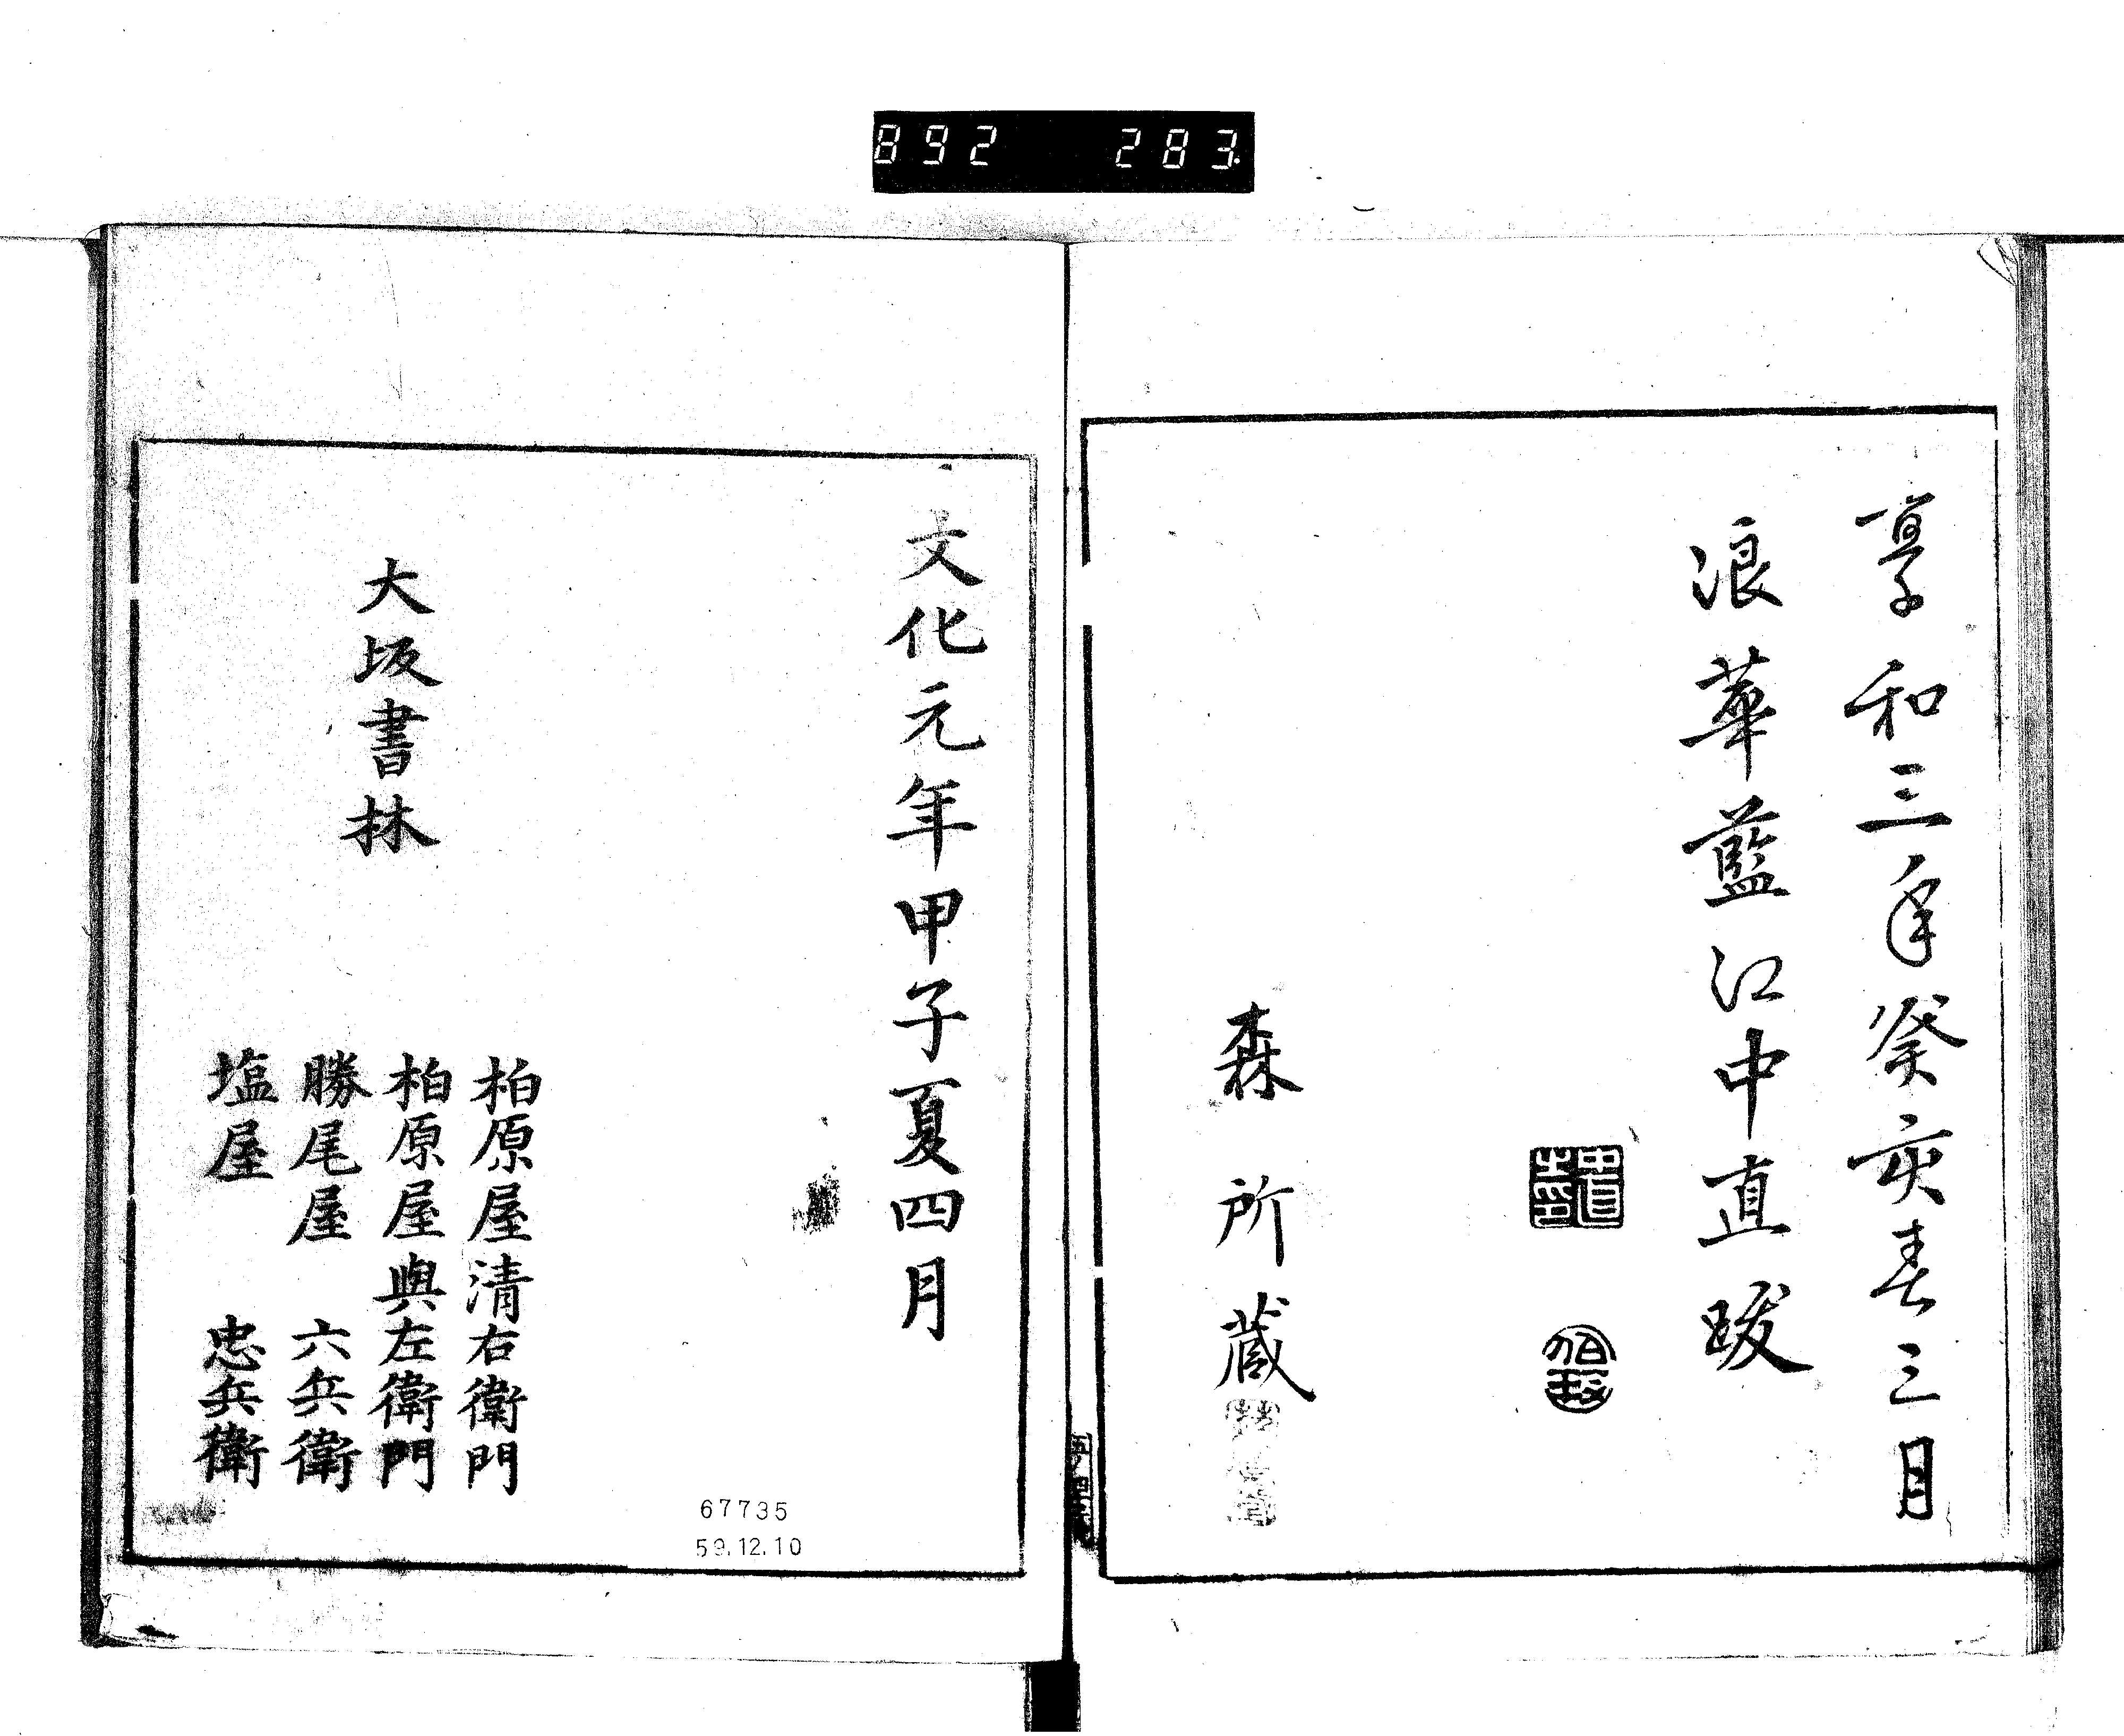 892 283
享和三年癸亥春三月
浪華藍江中直跋
森所蔵
文化元年甲子夏四月
大坂書林
柏原屋清右衛門
柏原屋與左衛門
勝尾屋六兵衛
塩屋忠兵衛
67735
59.12.10